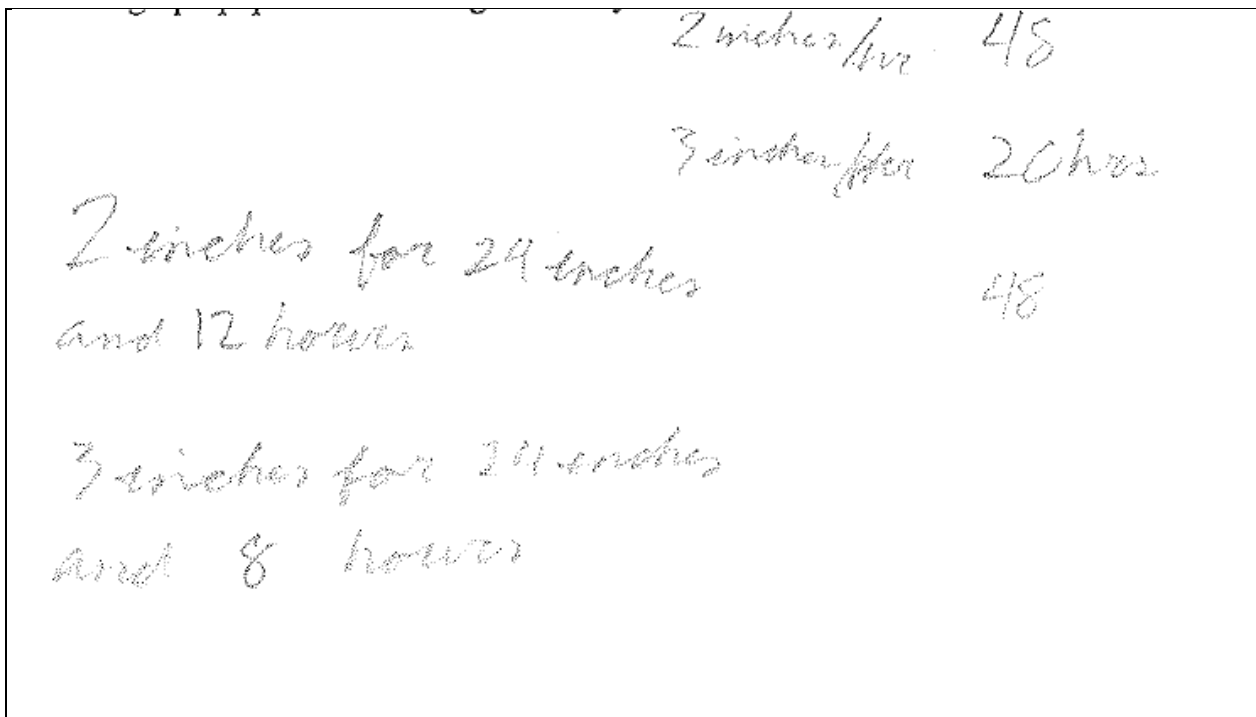 2 inches/hr 48
3 inches/hr 20 hrs
2 inches for 24 inches
and 12 hours
48
3 inches for 24 inches
and 8 hours